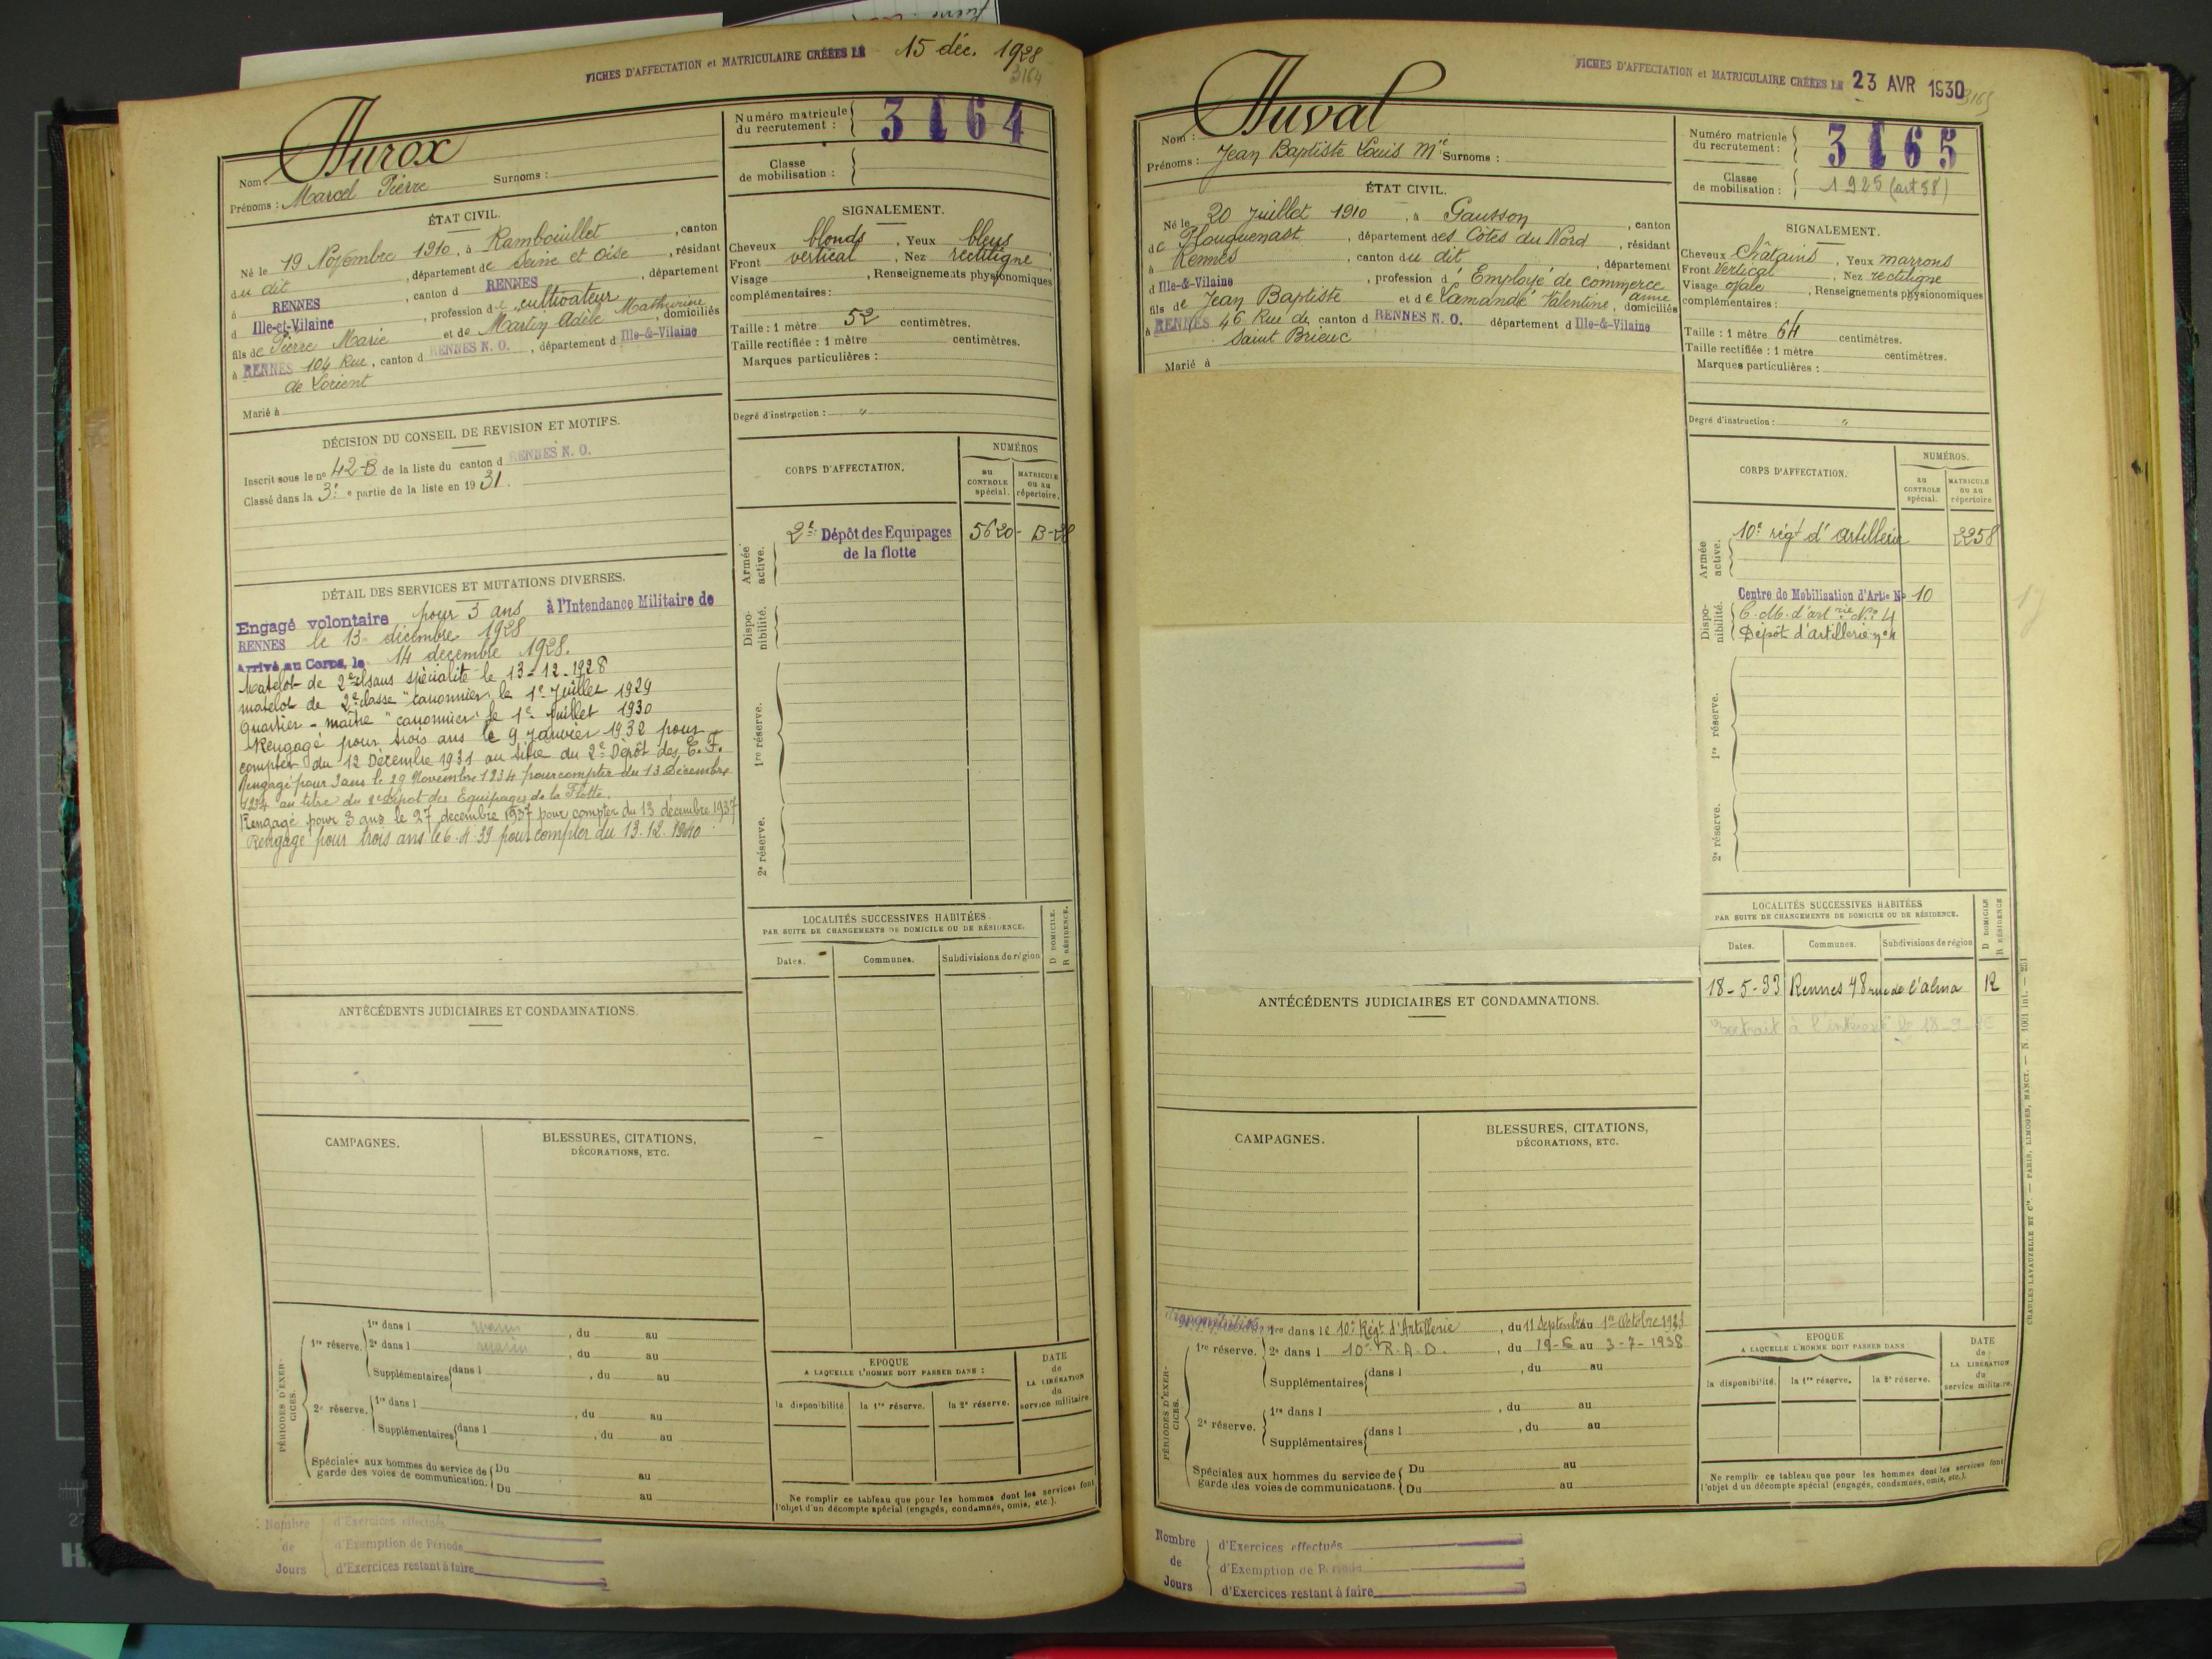 FICHES D'AFFECTATION et MATRICULAIRE CRÉÉES LE 15 déc. 1928
3164
Nom : Jurox
Prénoms : Marcel Pierre Surnoms :
Numéro matricule du recrutement : 3164
Classe de mobilisation :
ÉTAT CIVIL.
Né le 19 Novembre 1910, à Rambouillet, canton
du dit, département de Seine et Oise, résidant
à RENNES, canton d RENNES, département
d Ille-et-Vilaine, profession de cultivateur
fils de Pierre Marie et de Martin Adèle Mathurine, domiciliés
à RENNES 104 Rue, canton d RENNES N. O., département d Ille-&-Vilaine
de Lorient
Marié à
SIGNALEMENT.
Cheveux blonds, Yeux bleus
Front vertical, Nez rectiligne
Visage , Renseignements physionomiques
complémentaires :
Taille : 1 mètre 52 centimètres.
Taille rectifiée : 1 mètre centimètres.
Marques particulières :
Degré d'instruction : "
DÉCISION DU CONSEIL DE REVISION ET MOTIFS.
Inscrit sous le no 42-B de la liste du canton d RENNES N. O.
Classé dans la 3e e partie de la liste en 1931.
CORPS D'AFFECTATION.
NUMÉROS
au CONTROLE spécial.
MATRICULE ou au répertoire.
Armée active.
2e Dépôt des Equipages 5620-B-28
de la flotte
Disponibilité.
1re réserve.
2e réserve.
DÉTAIL DES SERVICES ET MUTATIONS DIVERSES.
Engagé volontaire pour 3 ans à l'Intendance Militaire de
RENNES le 13 décembre 1928
Arrivé au Corps, le 14 décembre 1928.
Matelot de 2e cl sans spécialité le 13-12-1928
matelot de 2e classe "canonnier" le 1er Juillet 1929
Quartier-maître "canonnier" le 1er Juillet 1930
Rengagé pour trois ans le 9 Janvier 1932 pour
compter du 12 Décembre 1931 au titre du 2e Dépôt des E. F.
Rengagé pour 3 ans le 29 Novembre 1934 pour compter du 13 Décembre
1934 au titre du 2e Dépôt des Equipages de la Flotte.
Rengagé pour 3 ans le 27 décembre 1937 pour compter du 13 décembre 1937
Rengagé pour trois ans le 6.4.39 pour compter du 13.12.1940.
LOCALITÉS SUCCESSIVES HABITÉES
PAR SUITE DE CHANGEMENTS DE DOMICILE OU DE RÉSIDENCE.
D DOMICILE.
R RÉSIDENCE.
Dates. Communes. Subdivisions de région
ANTÉCÉDENTS JUDICIAIRES ET CONDAMNATIONS.
CAMPAGNES.
BLESSURES, CITATIONS,
DÉCORATIONS, ETC.
PÉRIODES D'EXERCICES.
1re réserve.
1re dans l marin, du au
2e dans l marin, du au
Supplémentaires dans l , du au
2e réserve.
1re dans l , du au
Supplémentaires dans l , du au
Spéciales aux hommes du service de Du au
garde des voies de communication. Du au
EPOQUE
A LAQUELLE L'HOMME DOIT PASSER DANS :
la disponibilité. la 1re réserve. la 2e réserve.
DATE de LA LIBÉRATION du service militaire.
Ne remplir ce tableau que pour les hommes dont les services font
l'objet d'un décompte spécial (engagés, condamnés, omis, etc.).
Nombre de Jours
d'Exercices effectués
d'Exemption de Période
d'Exercices restant à faire
FICHES D'AFFECTATION et MATRICULAIRE CRÉÉES LE 23 AVR 1930
3165
Nom : Juval
Prénoms : Jean Baptiste Louis Mie Surnoms :
Numéro matricule du recrutement : 3165
Classe de mobilisation : 1925 (art 58)
ÉTAT CIVIL.
Né le 20 Juillet 1910, à Gausson, canton
de Plouguenast, département des Côtes du Nord, résidant
à Rennes, canton du dit, département
d Ille-&-Vilaine, profession d'Employé de commerce
fils de Jean Baptiste et de Lamandé Valentine Anne, domiciliés
à RENNES 46 Rue de, canton d RENNES N. O. département d Ille-&-Vilaine
Saint Brieuc
Marié à
SIGNALEMENT.
Cheveux châtains, Yeux marrons
Front vertical, Nez rectiligne
Visage ovale, Renseignements physionomiques
complémentaires :
Taille : 1 mètre 64 centimètres.
Taille rectifiée : 1 mètre centimètres.
Marques particulières :
Degré d'instruction : "
CORPS D'AFFECTATION.
NUMÉROS.
au CONTROLE spécial.
MATRICULE ou au répertoire
Armée active.
10e régt d'artillerie 3258
Disponibilité.
Centre de Mobilisation d'Artie No 10
C. M. d'artrie No 4
Dépôt d'artillerie no 4
1re réserve.
2e réserve.
LOCALITÉS SUCCESSIVES HABITÉES
PAR SUITE DE CHANGEMENTS DE DOMICILE OU DE RÉSIDENCE.
D DOMICILE
R RÉSIDENCE
Dates. Communes. Subdivisions de région
18-5-33 Rennes 48 rue de l'alma R
Extrait à l'intéressé le 18-9-
ANTÉCÉDENTS JUDICIAIRES ET CONDAMNATIONS.
CAMPAGNES.
BLESSURES, CITATIONS,
DÉCORATIONS, ETC.
PÉRIODES D'EXERCICES.
disponibilité
1re réserve.
1re dans le 10e Régt d'Artillerie, du 11 Septembre au 1er Octobre
2e dans l 10e R.A.D., du 19-6 au 3-7-1938
Supplémentaires dans l , du au
2e réserve.
1re dans l , du au
Supplémentaires dans l , du au
Spéciales aux hommes du service de Du au
garde des voies de communications. Du au
EPOQUE
A LAQUELLE L'HOMME DOIT PASSER DANS
la disponibilité. la 1re réserve. la 2e réserve.
DATE de LA LIBÉRATION du service militaire.
Ne remplir ce tableau que pour les hommes dont les services font
l'objet d'un décompte spécial (engagés, condamnés, omis, etc.).
CHARLES-LAVAUZELLE ET Cie. — PARIS, LIMOGES, NANCY. — N. 1001 int. — 251
Nombre de Jours
d'Exercices effectués
d'Exemption de Période
d'Exercices restant à faire